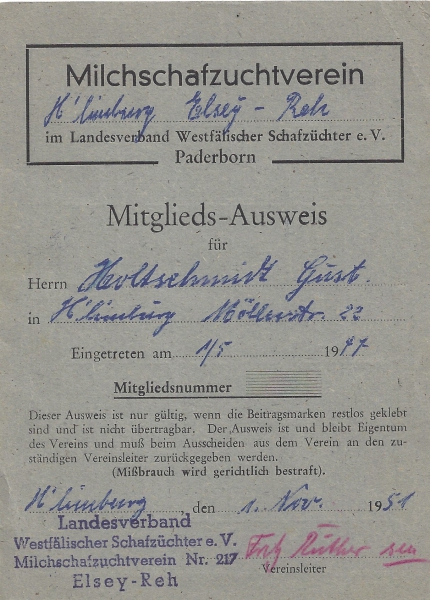 Milchschafzuchtverein
H'limburg Elsey - Reh
im Landesverband Westfälischer Schafzüchter e. V.
Paderborn
Mitglieds-Ausweis
für
Herrn Holtschmidt Gust.
in H'limburg Möllerstr. 22
Eingetreten am 1/5 1947
Mitgliedsnummer
Dieser Ausweis ist nur gültig, wenn die Beitragsmarken restlos geklebt
sind und ist nicht übertragbar. Der Ausweis ist und bleibt Eigentum
des Vereins und muß beim Ausscheiden aus dem Verein an den zu-
ständigen Vereinsleiter zurückgegeben werden.
(Mißbrauch wird gerichtlich bestraft).
H'limburg, den 1. Nov. 1951
Landesverband
Westfälischer Schafzüchter e. V.
Milchschafzuchtverein Nr. 217
Elsey-Reh
Fritz Rüther sen
Vereinsleiter